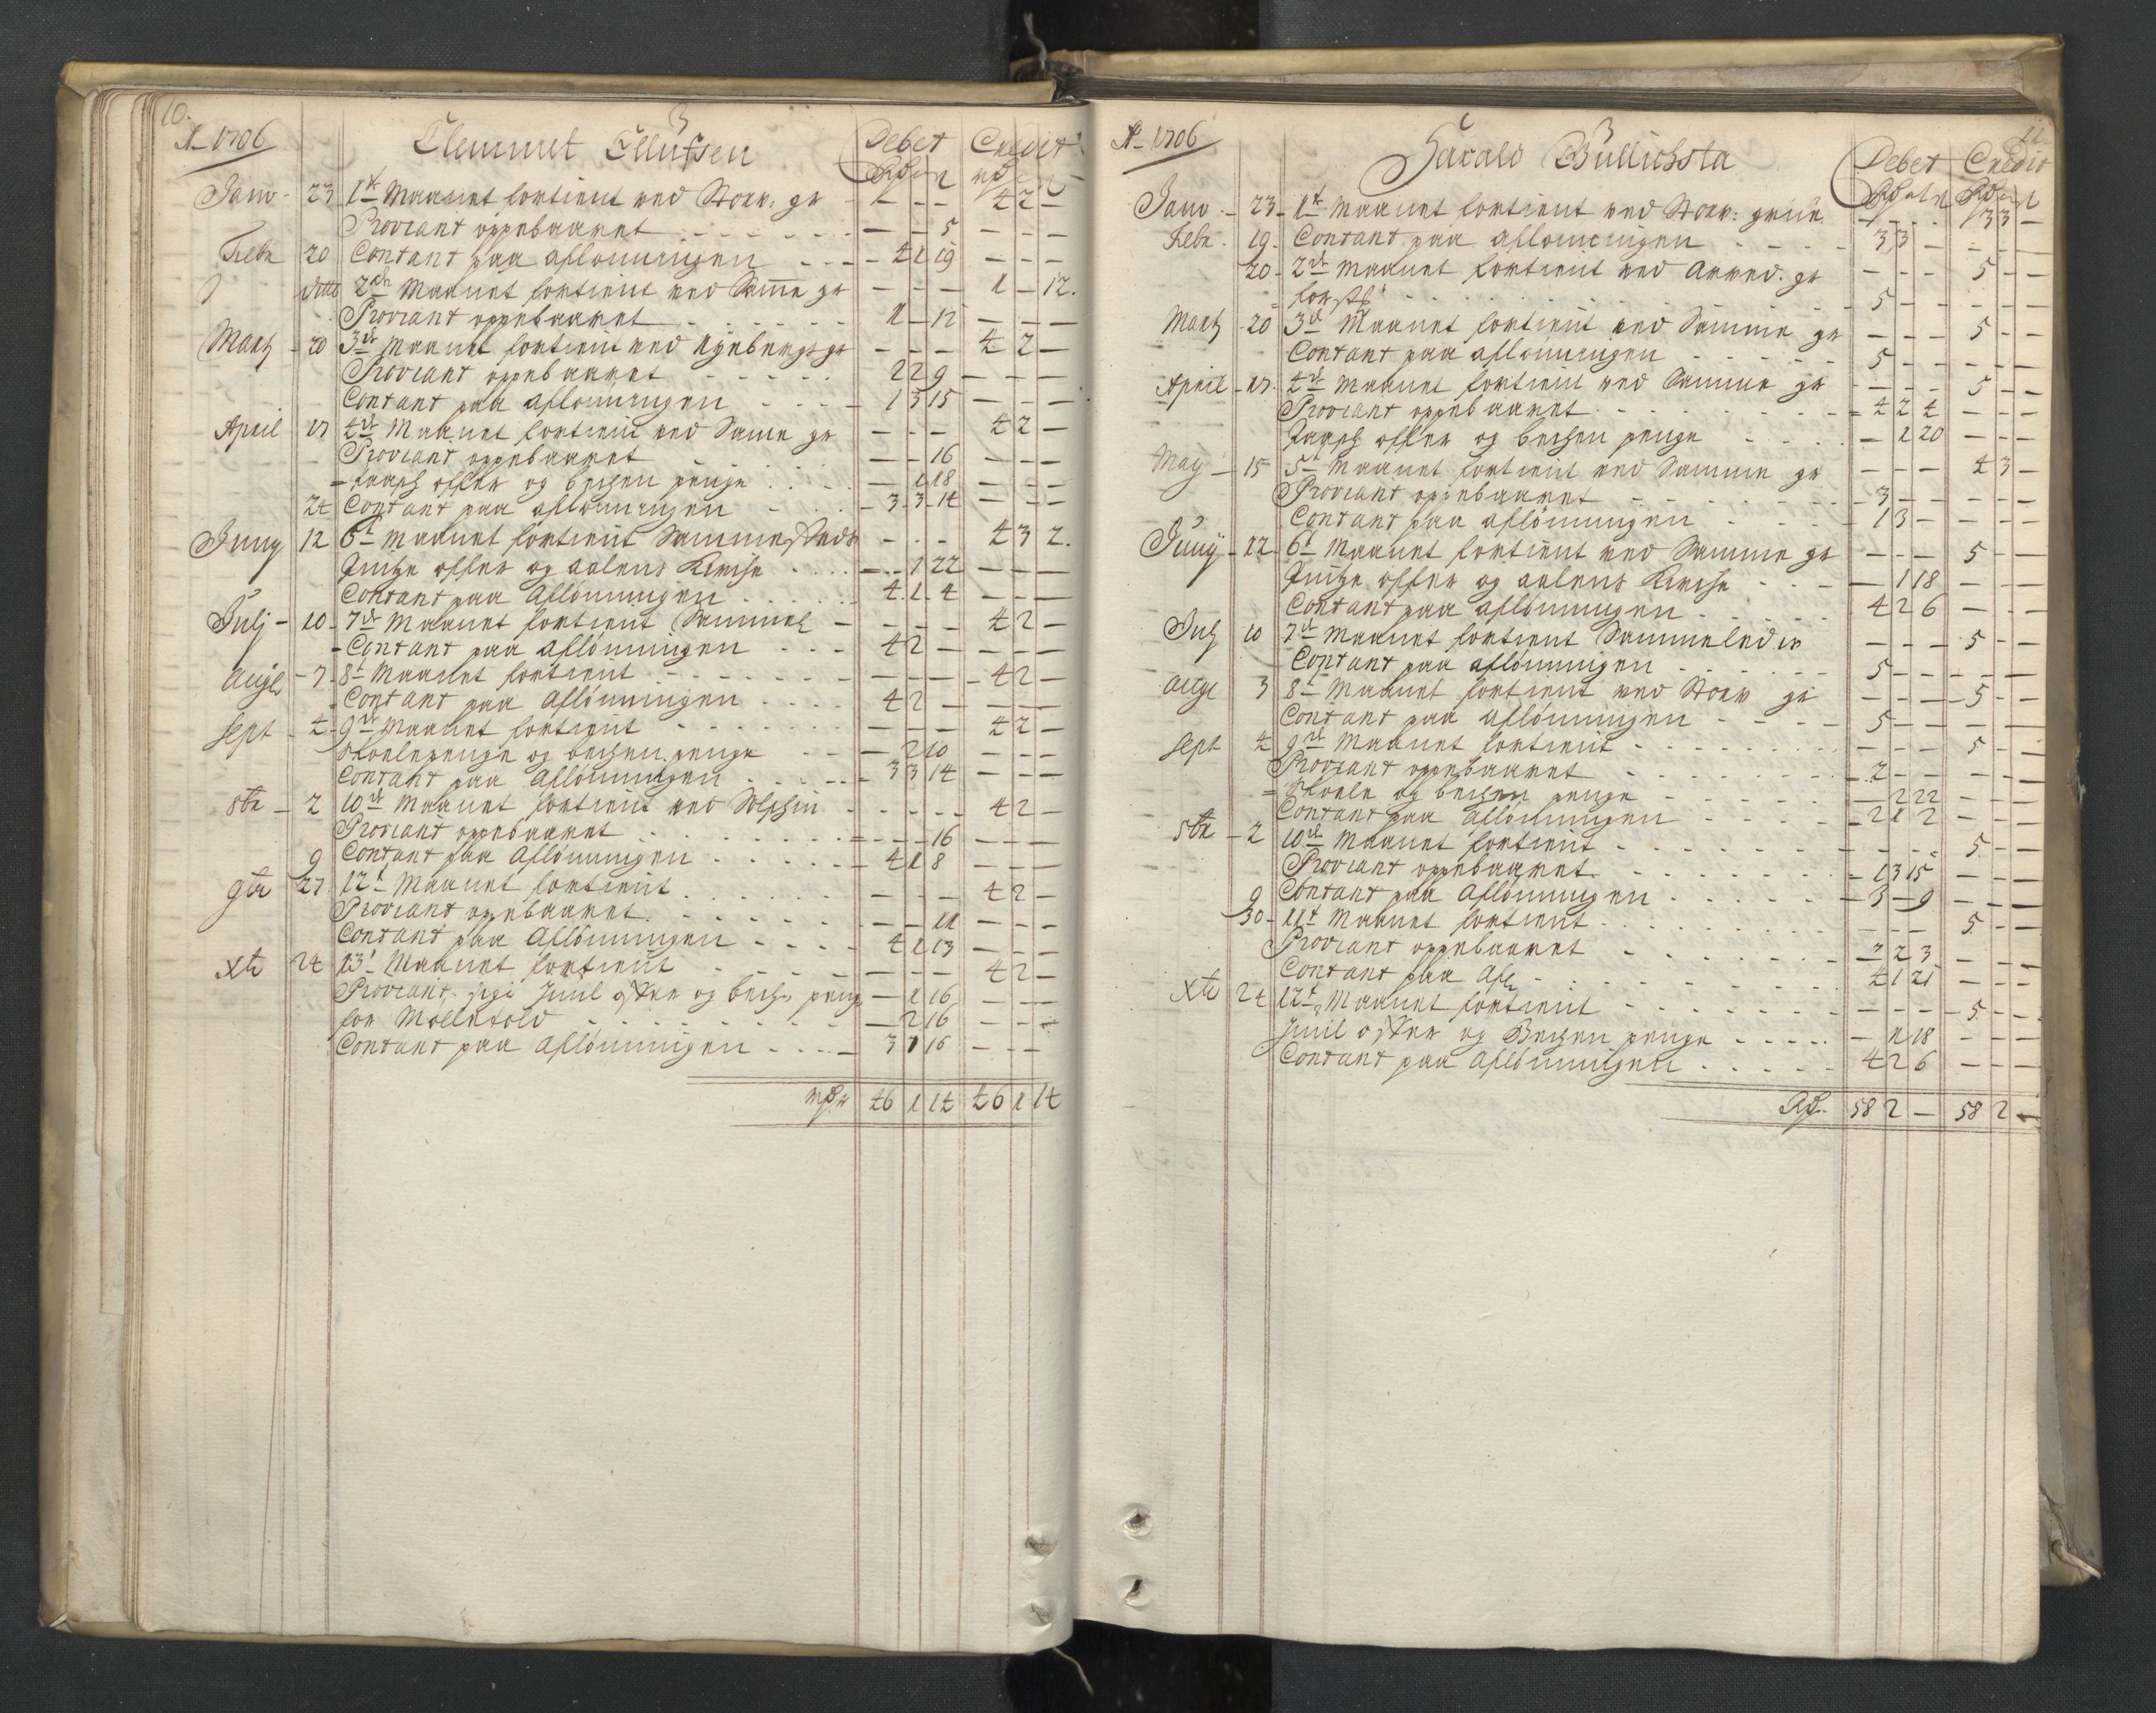 10.
Ao 1706
3
Clemmet Ellufsen
Debet Credit
Janv - 23 1te Maanet fortient ved Storv: gr - - - 4 2 -
Proviant oppebaaret - - 5 - - -
Febr 20 Contant paa aflonningen 4 1 19 - - -
ditto 2den Maanet fortient ved Samme gr - - - 1 - 12.
Proviant oppebaaret 1 - 12 - - -
Marty - 20 3de Maanet fortient ved gr - - - 4 2 -
Proviant oppebaaret 2 2 9 - - -
Contant paa aflonningen 1 3 15 - - -
April 17 4de Maanet fortient ved Same gr - - - 4 2 -
Proviant oppebaaret - - 16 - - -
offer og becken penge - 1 18 - - -
24 Contant paa aflonningen 3 3 14 - - -
Juny 12 6t Maanet fortient Sammesteds - - - 4 3 2.
offer og Kircke - 1 22 - - -
Contant paa Aflönningen 4 1 4 - - -
Julj - 10 - 7de Maanet fortient - - - 4 2 -
Contant paa Aflönningen 4 2 - - - -
Augt - 7 - 8t Maanet fortient - - - 4 2 -
Contant paa Aflönningen 4 2 - - - -
Sept - 4 - 9de Maanet fortient - - - 4 2 -
Skolepenge og becken penge - 2 10 - - -
Contant paa Aflönningen 3 3 14 - - -
8br - 2 10de Maanet fortient ved - - - 4 2 -
Proviant oppebaaret - - 16 - - -
9 Contant paa Aflönningen 4 1 8 - - -
9br 27 12t Maanet fortient - - - 4 2 -
Proviant oppebaaret - - 11 - - -
Contant paa Aflönningen 4 1 13 - - -
Xbr 24 13t Maanet fortient - - - 4 2 -
Proviant Juul offer og penge - 1 16 - - -
for - 2 16 - - -
Contant paa Aflönningen 3 1 16 - - -
46 1 14 46 1 14
11
Ao 1706
3
Harald
Debet Credit
Janv - 23 - 1te Maanet fortient ved Storv: - - - 3 3 -
Febr. 19 - Contant paa aflonningen 3 3 - - - -
20 - 2de Maanet fortient ved gr - - - 5 - -
5 - - - - -
Marty - 20 3de Maanet fortient ved Samme gr - - - 5 - -
Contant paa aflonningen 5 - - - - -
April - 17. 4de Maanet fortient ved Samme gr - - - 5 - -
Proviant oppebaaret 4 2 4 - - -
offer og becken penge - 1 20 - - -
May - 15 5t Maanet fortient ved Samme gr - - - 4 3 -
Proviant oppebaaret 3 - - - - -
Contant paa aflönningen 1 3 - - - -
Junij - 12 6t Maanet fortient ved Samme gr - - - 5 - -
offer og Kircke - 1 18 - - -
Contant paa aflönningen 4 2 6 - - -
July 10 7de Maanet fortient Sammeledes - - - 5 - -
Contant paa aflönningen 5 - - - - -
Augt 3 8t Maanet fortient ved Storv gr - - - 5 -
Contant paa aflönningen 5 - - - - -
Sept 4 9de Maanet fortient - - - 5 - -
Proviant oppebaaret 2 - - - - -
Skole og becken penge - 2 22 - - -
Contant paa Aflönningen 2 1 2 - - -
8br - 2 10de Maanet fortient - - - 5 - -
Proviant oppebaaret 1 3 15 - - -
9 Contant paa Aflönningen 3 - 9 - - -
30 - 11t Maanet fortient - - - 5 - -
Proviant oppebaaret 2 3 - - -
Contant paa Afl 4 1 21 - - -
Xbr 24 12t Maanet fortient - - - 5 - -
Juul offer og Becken penge - 1 18 - - -
Contant paa Aflönningen 4 2 6 - - -
58 2 - 58 2 -